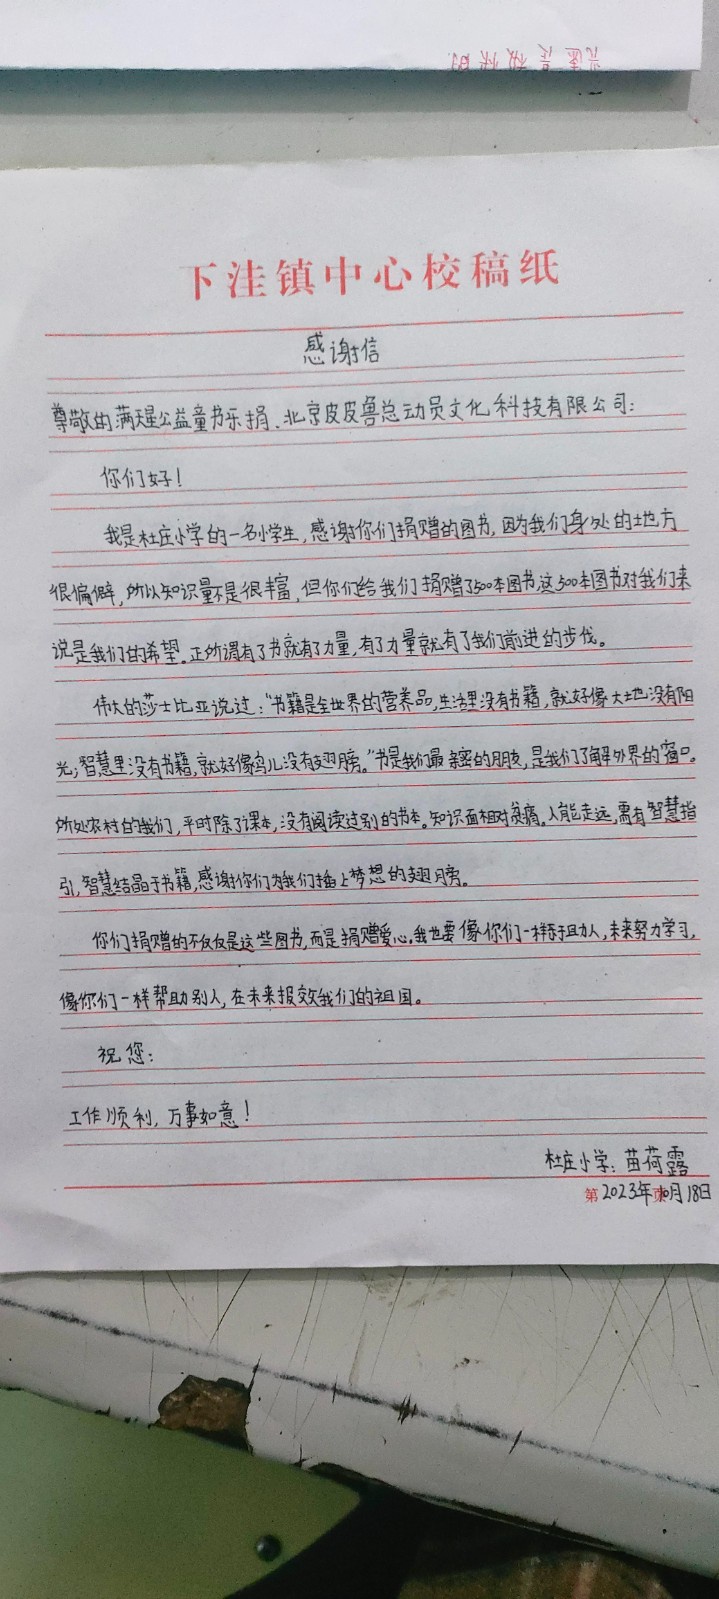 下洼镇中心校稿纸
感谢信
尊敬的满天星公益童书乐捐、北京皮皮鲁总动员文化科技有限公司：
你们好！
我是杜庄小学的一名小学生，感谢你们捐赠的图书，因为我们身处的地方
很偏僻，所以知识量不是很丰富，但你们给我们捐赠了500本图书这500本图书对我们来
说是我们的希望。正所谓有了书就有了力量，有了力量就有了我们前进的步伐。
伟大的莎士比亚说过：“书籍是全世界的营养品，生活里没有书籍，就好像大地没有阳
光；智慧里没有书籍，就好像鸟儿没有翅膀。”书是我们最亲密的朋友，是我们了解外界的窗口。
所处农村的我们，平时除了课本，没有阅读过别的书本。知识面相对贫瘠。人能走远，需有智慧指
引，智慧结晶于书籍，感谢你们为我们插上梦想的翅膀。
你们捐赠的不仅仅是这些图书，而是捐赠爱心。我也要像你们一样乐于助人，未来努力学习，
像你们一样帮助别人，在未来报效我们的祖国。
祝您：
工作顺利，万事如意！
杜庄小学：苗荷露
第 2023年10月18日